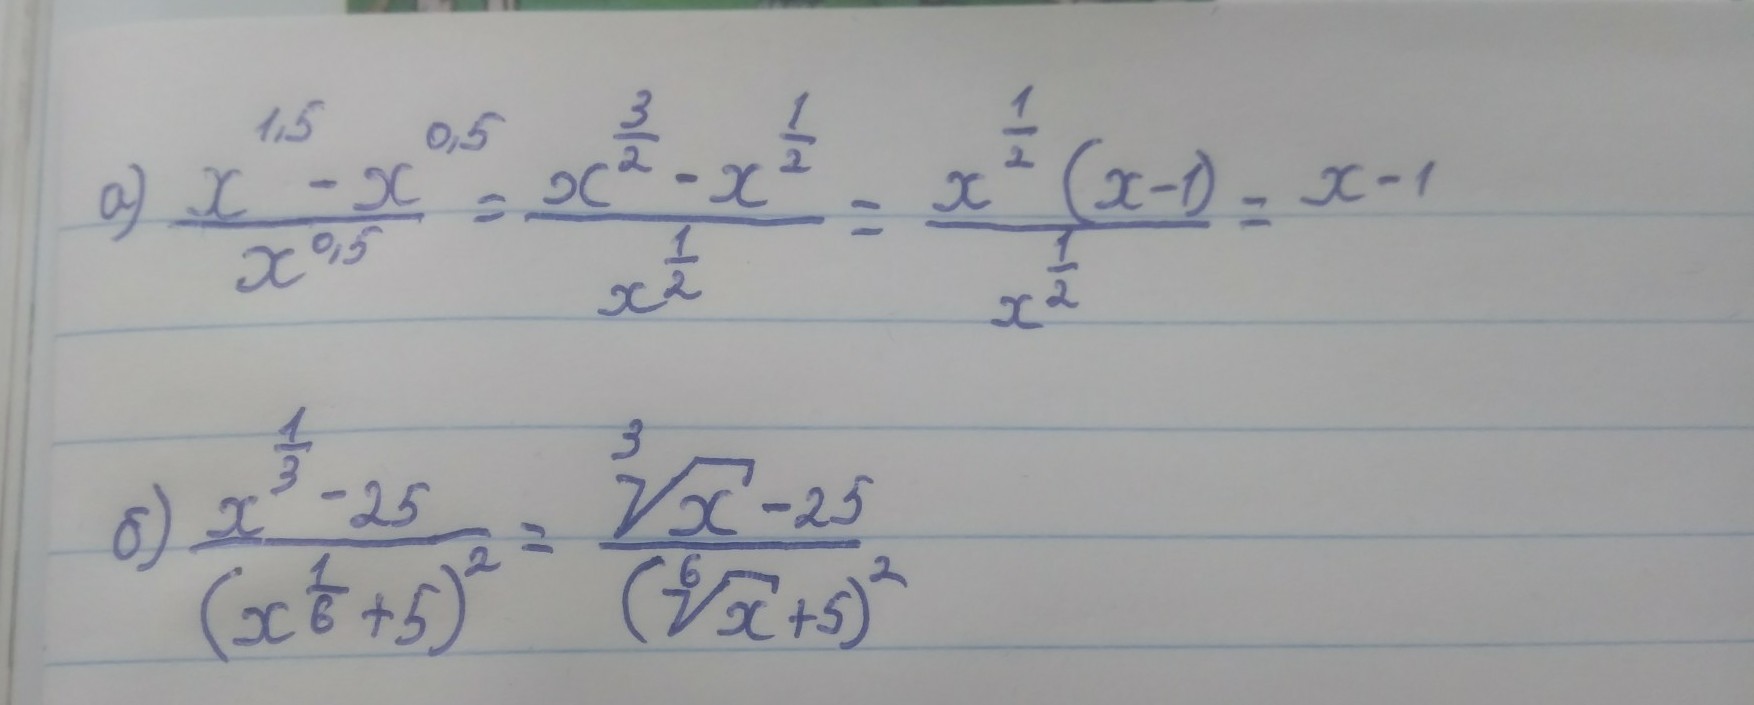 а) \frac{x^{1,5} - x^{0,5}}{x^{0,5}} = \frac{x^{\frac{3}{2}} - x^{\frac{1}{2}}}{x^{\frac{1}{2}}} = \frac{x^{\frac{1}{2}}(x-1)}{x^{\frac{1}{2}}} = x-1
б) \frac{x^{\frac{1}{3}} - 25}{(x^{\frac{1}{6}} + 5)^2} = \frac{\sqrt[3]{x} - 25}{(\sqrt[6]{x} + 5)^2}